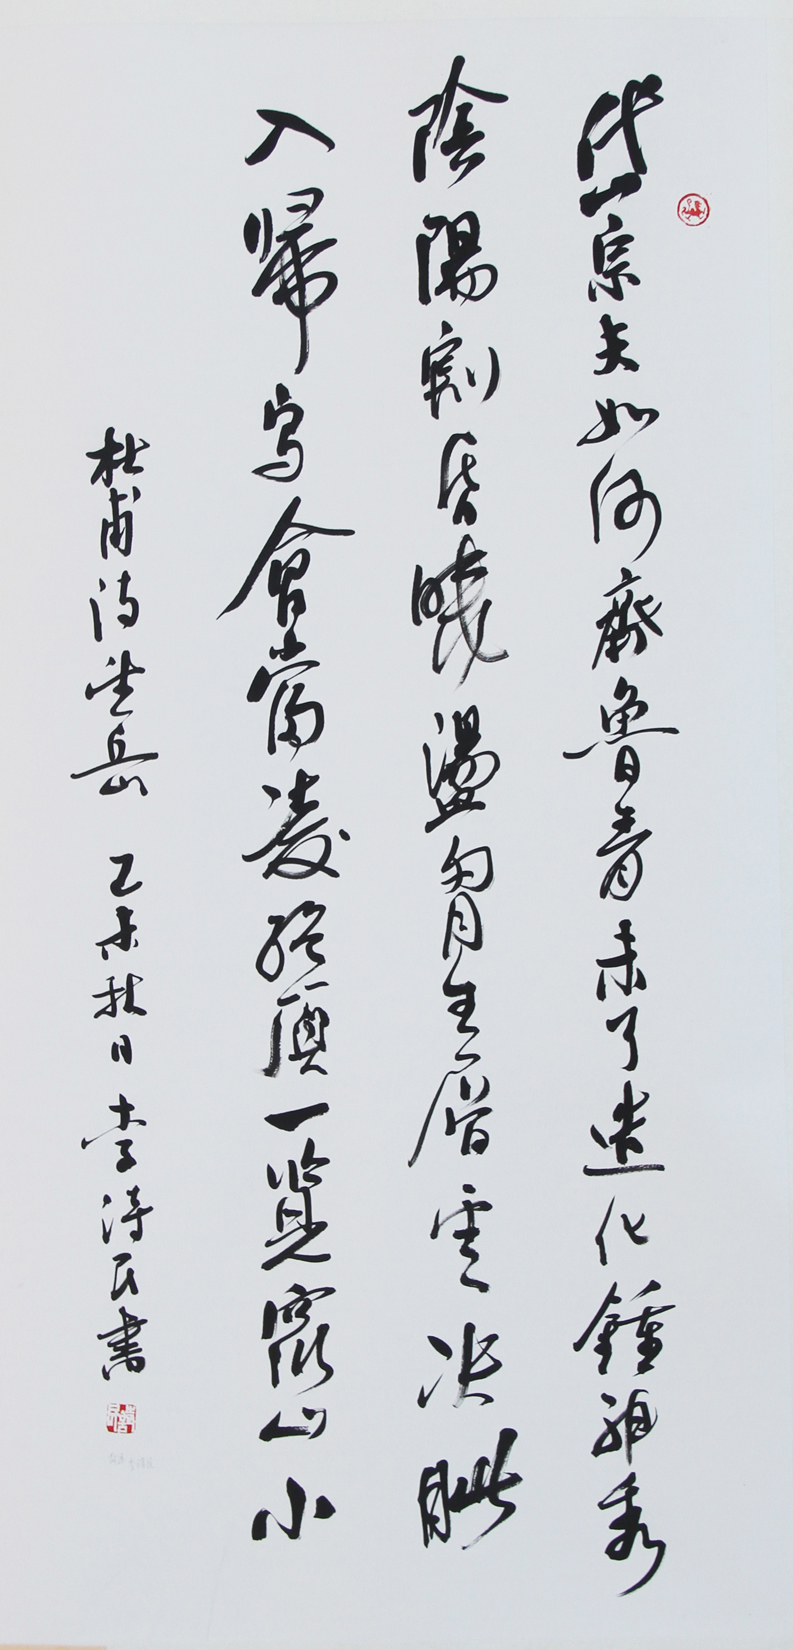 岱宗夫如何齊魯青未了造化鍾神秀
陰陽割昏曉盪胷生層雲决眦
入歸鳥會當凌絕頂一覽眾山小
杜甫詩望岳 乙未秋日 李濤民書